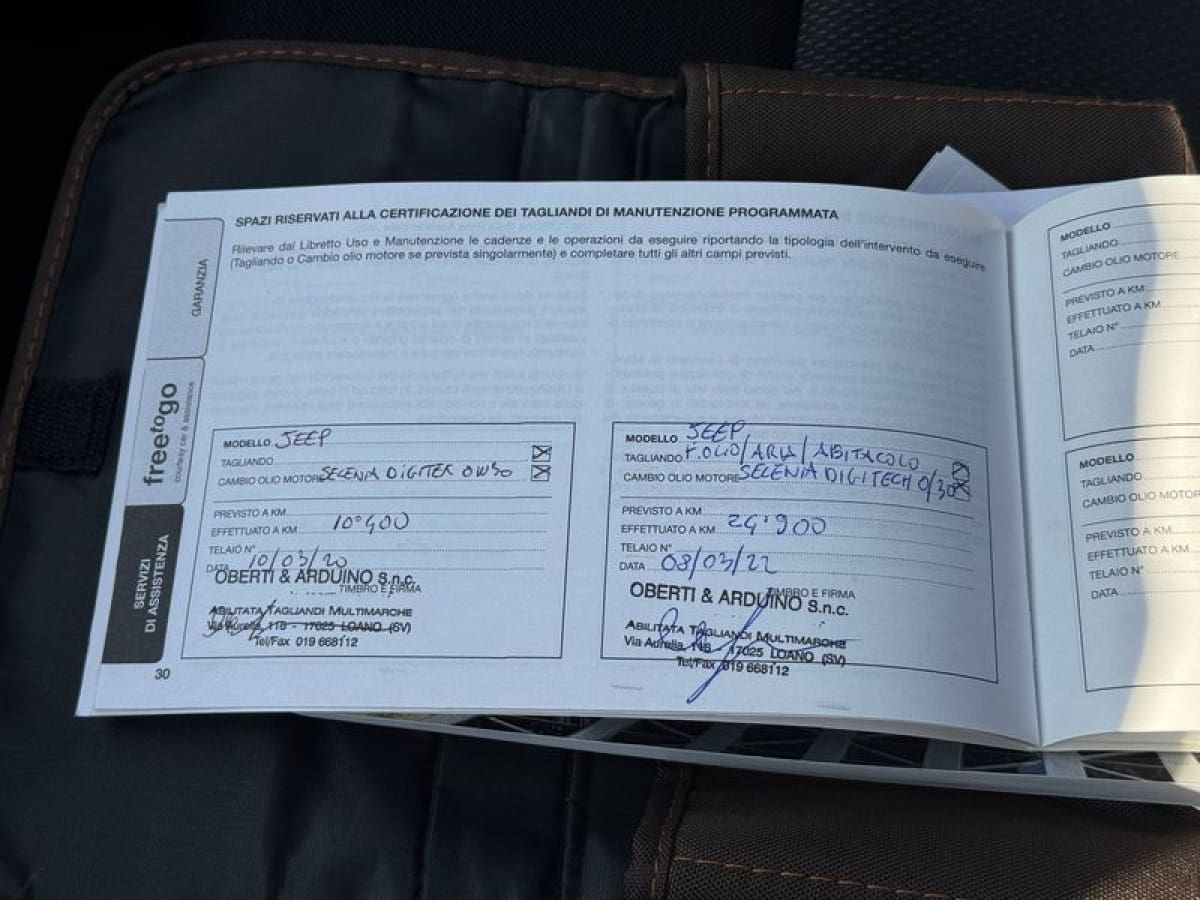 SPAZI RISERVATI ALLA CERTIFICAZIONE DEI TAGLIANDI DI MANUTENZIONE PROGRAMMATA
Rilevare dal Libretto Uso e Manutenzione le cadenze e le operazioni da eseguire riportando la tipologia dell'intervento da eseguire
(Tagliando o Cambio olio motore se prevista singolarmente) e completare tutti gli altri campi previsti.
GARANZIA
freetogo
courtesy car & assistance
SERVIZI
DI ASSISTENZA
MODELLO JEEP
TAGLIANDO
CAMBIO OLIO MOTORE SELENIA DIGITEK 0W30
PREVISTO A KM
EFFETTUATO A KM 10°400
TELAIO N°
DATA 10/03/20
OBERTI & ARDUINO S.n.c.
TIMBRO E FIRMA
ABILITATA TAGLIANDI MULTIMARCHE
Via Aurelia, 118 - 17025 LOANO (SV)
Tel/Fax 019 668112
30
MODELLO JEEP
TAGLIANDO F.OLIO/ARIA/ABITACOLO
CAMBIO OLIO MOTORE SELENIA DIGITECH 0/30
PREVISTO A KM
EFFETTUATO A KM 24°900
TELAIO N°
DATA 08/03/22
TIMBRO E FIRMA
OBERTI & ARDUINO S.n.c.
ABILITATA TAGLIANDI MULTIMARCHE
Via Aurelia, 118 17025 LOANO (SV)
Tel/Fax 019 668112
MODELLO
TAGLIANDO
CAMBIO OLIO MOTORE
PREVISTO A KM
EFFETTUATO A KM
TELAIO N°
DATA
MODELLO
TAGLIANDO
CAMBIO OLIO MOTOR
PREVISTO A KM
EFFETTUATO A KM
TELAIO N°
DATA